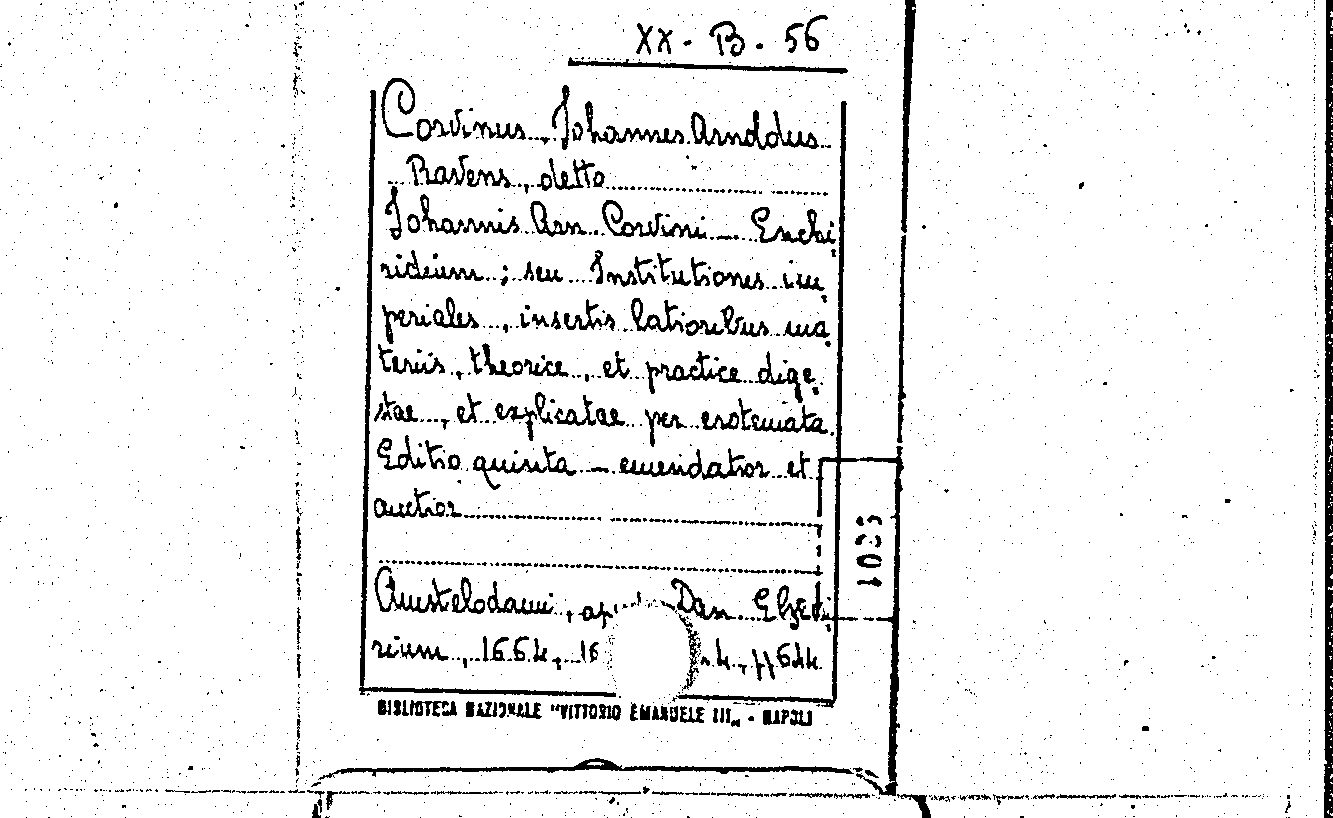 XX - B. 56
Corvinus, Johannes Arnoldus
Ravens, detto
Johannis Arn. Corvini — Enchi
ridium ; seu Institutiones im
periales, insertis latioribus ma
teriis, theorice, et practice dige
stae, et explicatae per erotemata
Editio quinta — emendatior et
auctior
Amstelodami, Dan. Elzevi
rium, 1664, 16 4., pp 644
BIBLIOTECA NAZIONALE "VITTORIO EMANUELE III„ - NAPOLI